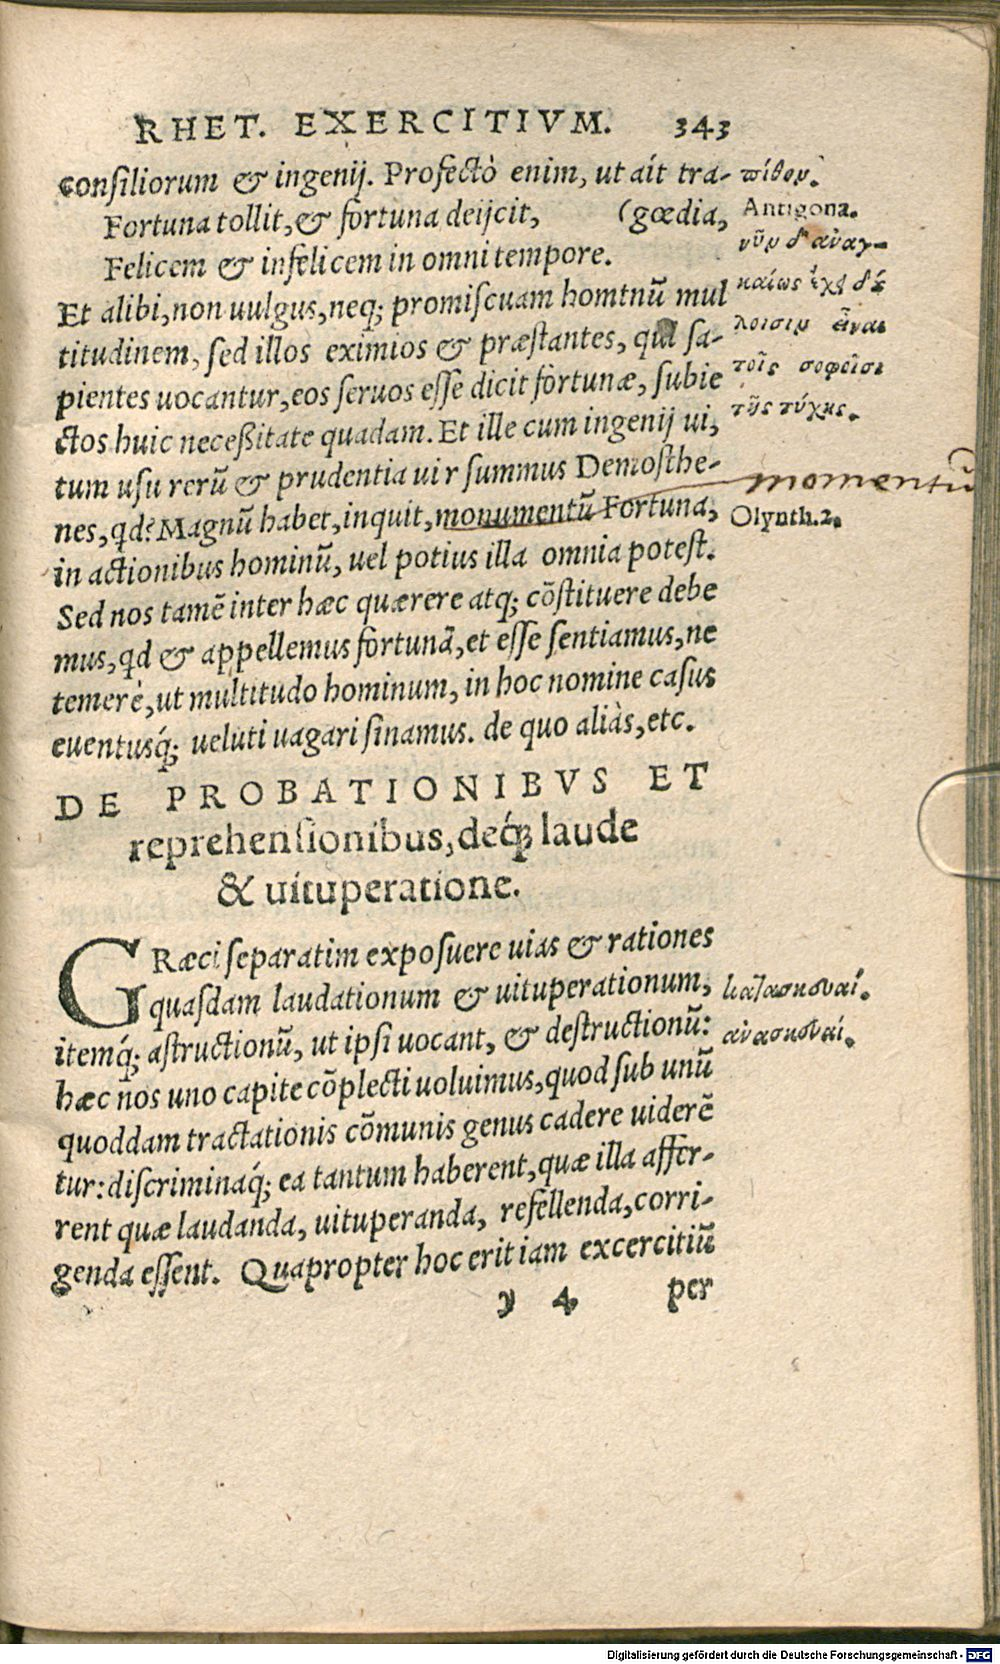 RHET. EXERCITIVM. 343
consiliorum & ingenij. Profectò enim, ut ait tra-
Fortuna tollit, & fortuna deijcit, (gœdia,
Felicem & infelicem in omni tempore.
Et alibi, non uulgus, neq; promiscuam homtnũ mul
titudinem, sed illos eximios & præstantes, qui sa-
pientes uocantur, eos seruos esse dicit fortunæ, subie
ctos huic neceßitate quadam. Et ille cum ingenij ui,
tum usu rerũ & prudentia uir summus Demosthe-
nes, qd? Magnũ habet, inquit, monumentũ Fortuna,
in actionibus hominũ, uel potius illa omnia potest.
Sed nos tamẽ inter hæc quærere atq; cõstituere debe
mus, qd & appellemus fortunã, et esse sentiamus, ne
temerè, ut multitudo hominum, in hoc nomine casus
euentusq́; ueluti uagari sinamus. de quo aliàs, etc.
πίθον.
Antigona.
νῦν δ' ἀναγ-
καίως ἔχει δέ
λοισιν εἶναι
τοῖς σοφοῖσι
τῆς τύχης.
momentũ
Olynth. 2.
DE PROBATIONIBVS ET
reprehensionibus, deq́; laude
& uituperatione.
GRæci separatim exposuere uias & rationes
quasdam laudationum & uituperationum,
itemq́; astructionũ, ut ipsi uocant, & destructionũ:
hæc nos uno capite cõplecti uoluimus, quod sub unũ
quoddam tractationis cõmunis genus cadere uiderẽ
tur: discriminaq́; ea tantum haberent, quæ illa affer-
rent quæ laudanda, uituperanda, refellenda, corri-
genda essent. Quapropter hoc erit iam excercitiũ
κατασκευαί.
ἀνασκευαί.
y 4 per
Digitalisierung gefördert durch die Deutsche Forschungsgemeinschaft - DFG